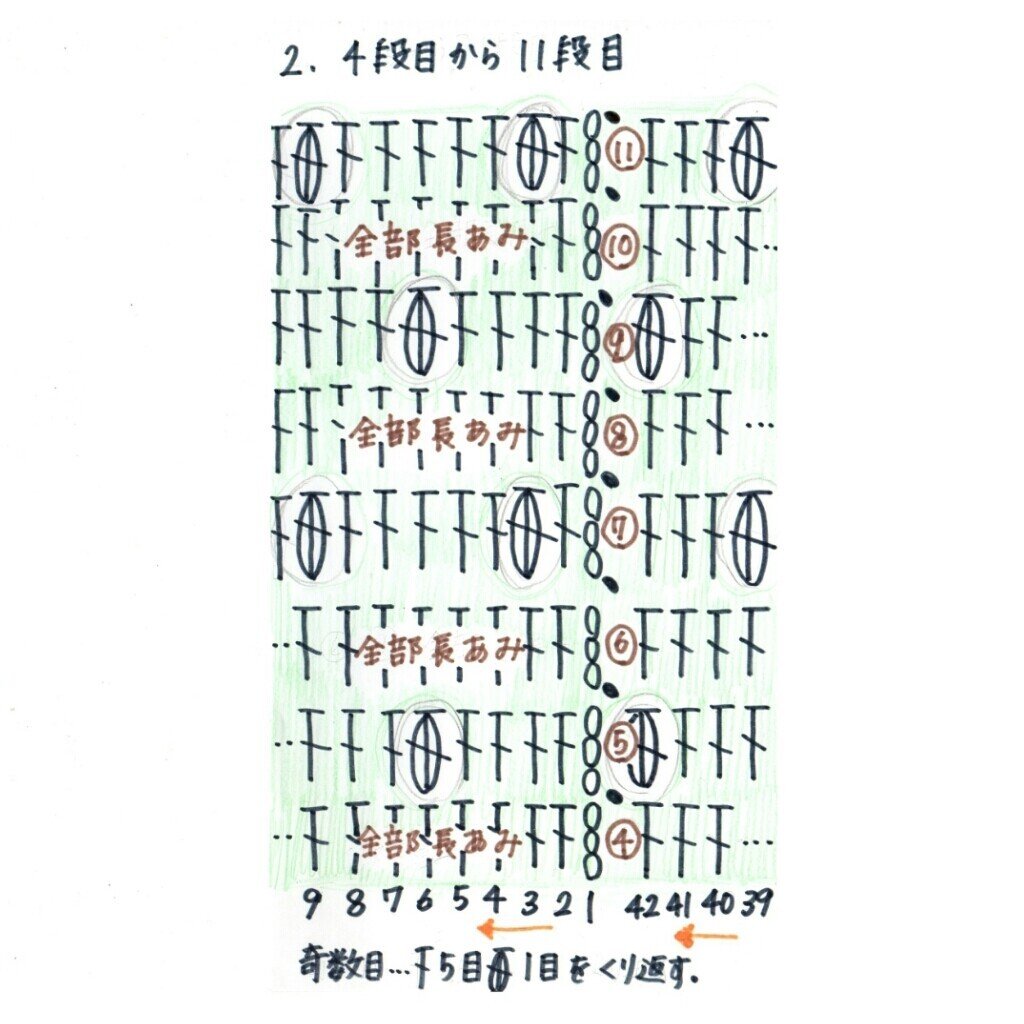 2. 4段目から11段目
⑪
全部長あみ ⑩
⑨ ...
全部長あみ ⑧ ...
⑦
全部長あみ ⑥
⑤
全部長あみ ④ ...
9 8 7 6 5 4 3 2 1 42 41 40 39
奇数目…5目1目をくり返す.